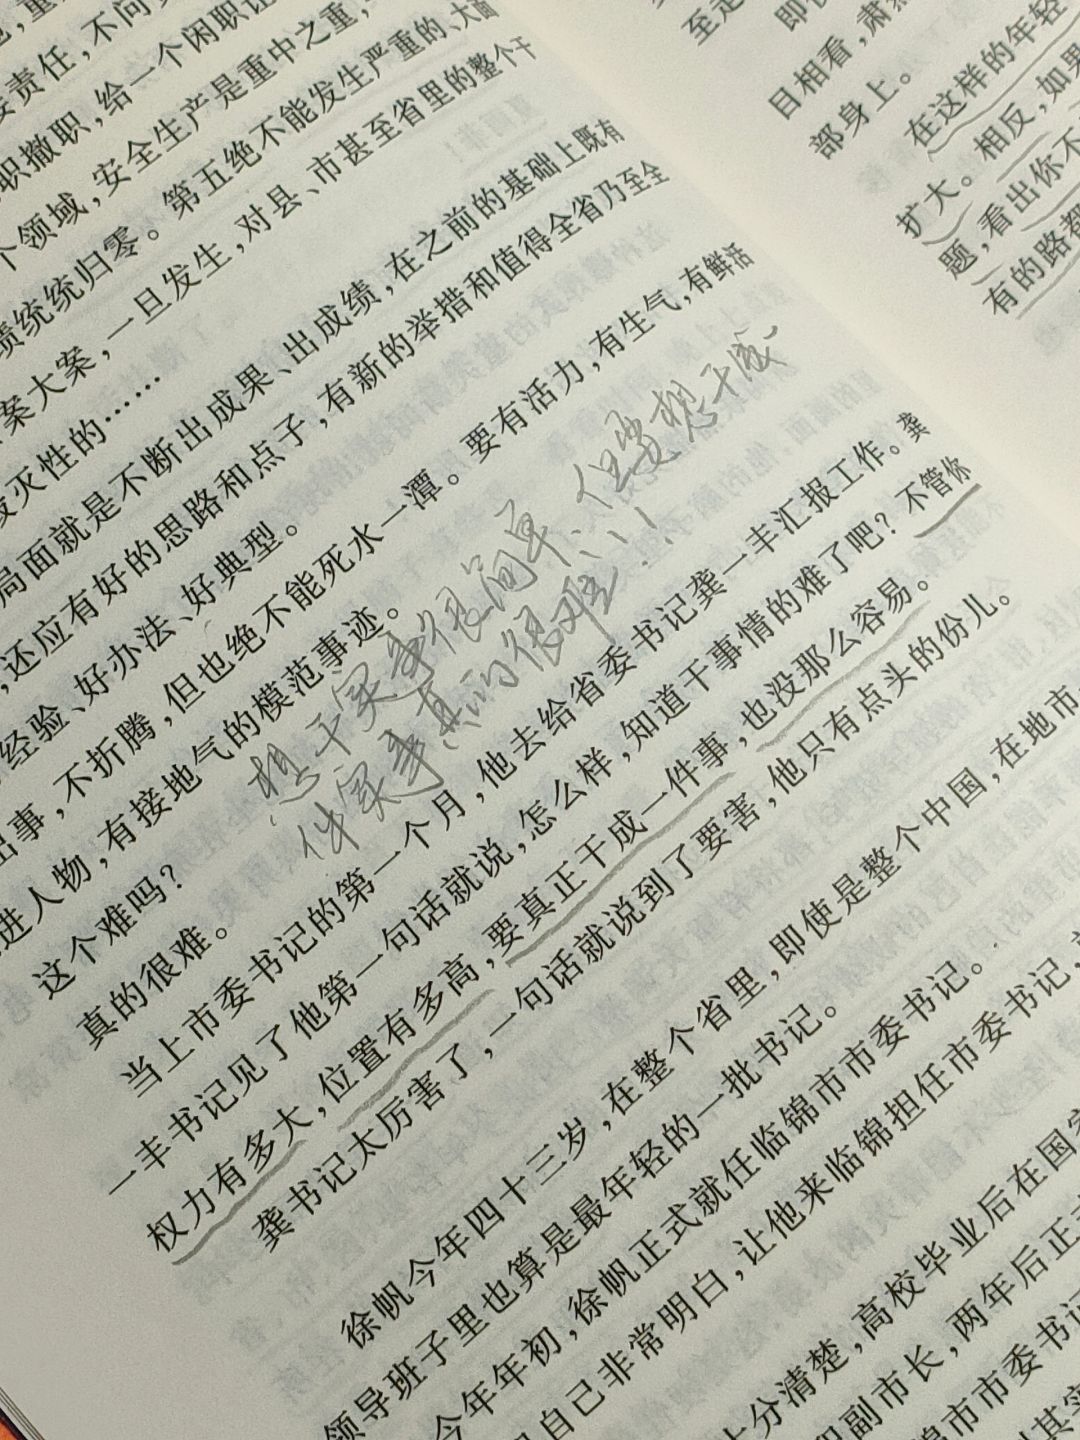 要责任，不问
职撤职，给一个闲职让
个领域，安全生产是重中之重，
绩统统归零。第五绝不能发生严重的、大面
案大案，一旦发生，对县、市甚至省里的整个干
灭性的……
局面就是不断出成果、出成绩，在之前的基础上既有
还应有好的思路和点子，有新的举措和值得全省乃至全
经验、好办法、好典型。
出事，不折腾，但也绝不能死水一潭。要有活力，有生气，有鲜活
进人物，有接地气的模范事迹。
想干实事很简单，但要想干成一
件实事真的很难！！！
这个难吗？
真的很难。
当上市委书记的第一个月，他去给省委书记龚一丰汇报工作。龚
一丰书记见了他第一句话就说，怎么样，知道干事情的难了吧？不管你
权力有多大，位置有多高，要真正干成一件事，也没那么容易。
龚书记太厉害了，一句话就说到了要害，他只有点头的份儿。
徐帆今年四十三岁，在整个省里，即使是整个中国，在地市
领导班子里也算是最年轻的一批书记。
今年年初，徐帆正式就任临锦市市委书记。
自己非常明白，让他来临锦担任市委书记，
十分清楚，高校毕业后在国家
副市长，两年后正式
锦市市委书记
至走
即
目相看，肃
部身上。
在这样的年轻
扩大。相反，如果
题，看出你不
有的路都